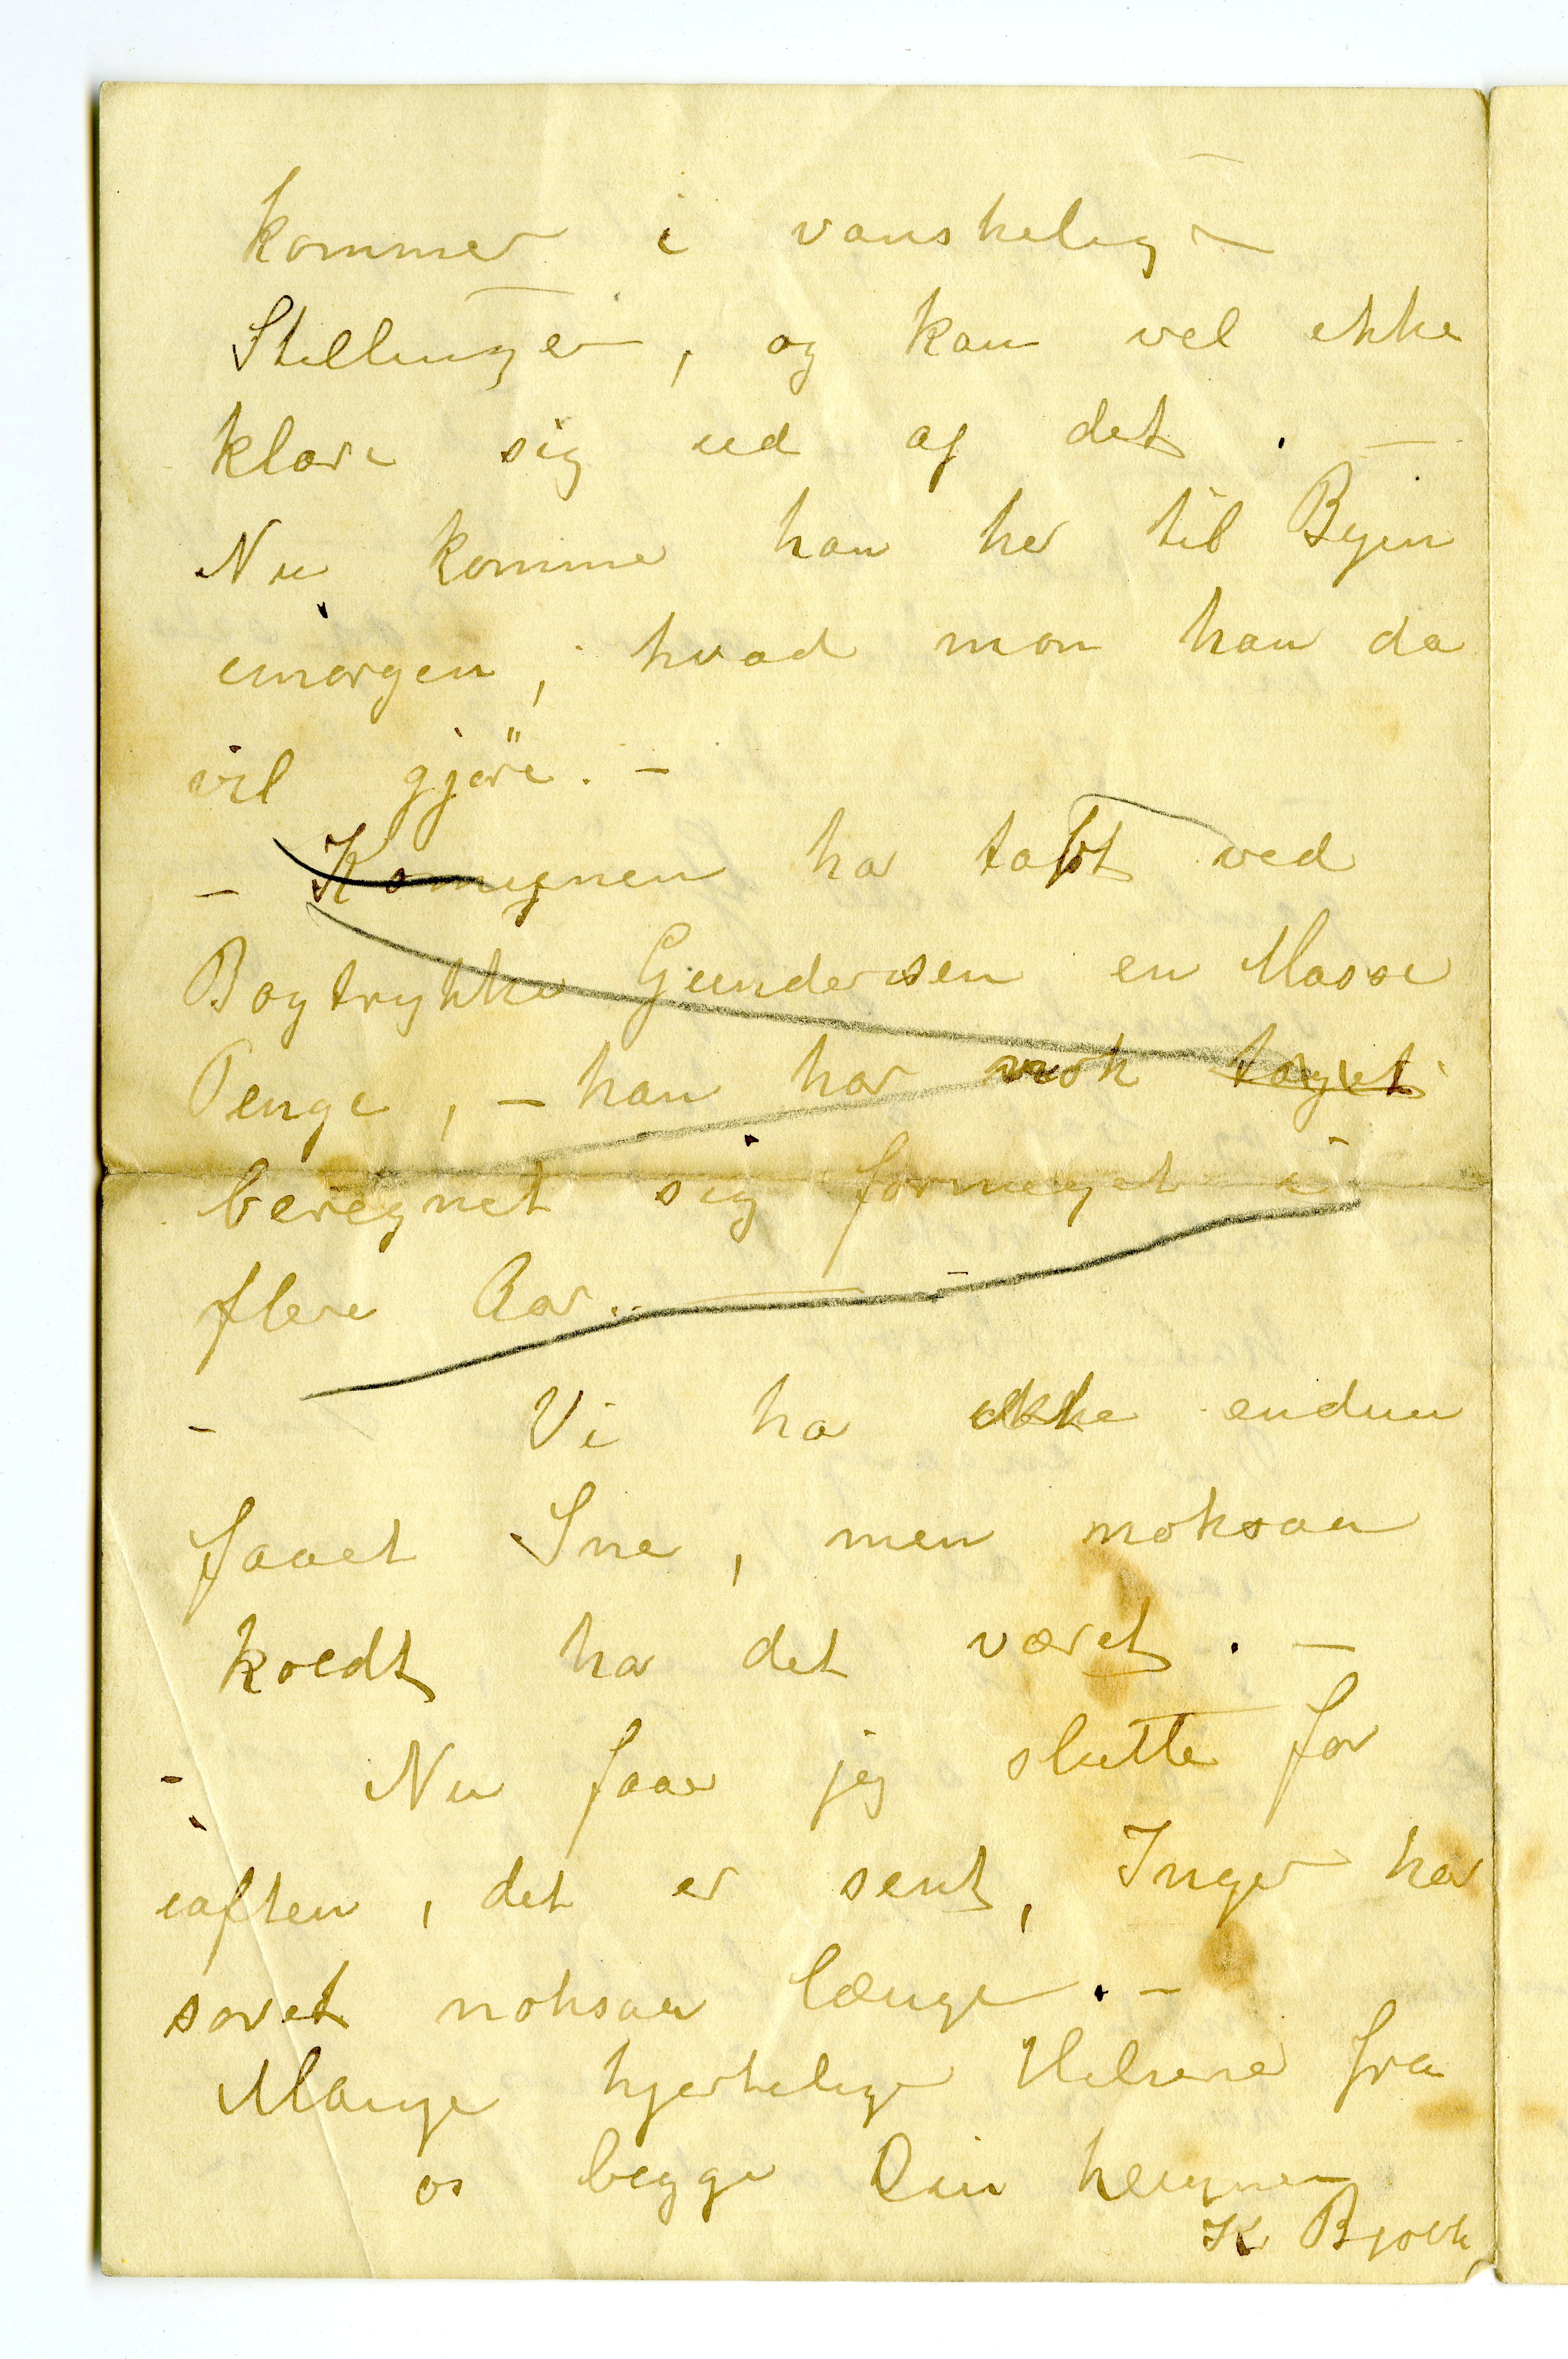 kommer i vanskelige
Stillinger, og kan vel ikke
klare sig ud af det. —
Nu komme han her til Byen
imorgen, hvad mon han da
vil gjöre. —
— ha tabt ved
Bogtrykker Gundersen en Masse
Penge, — han har nok taget
beregnet sig formeget i
flere Aar. —
— Vi ha ikke endnu
faaet Sne, men noksaa
koldt ha det været. —
— Nu faar jeg slutte for
iaften, det er sent, Inger har
sovet noksaa længe. —
Mange hjertelige Hilsener fra
os begge Din hengivne
K Bjølk